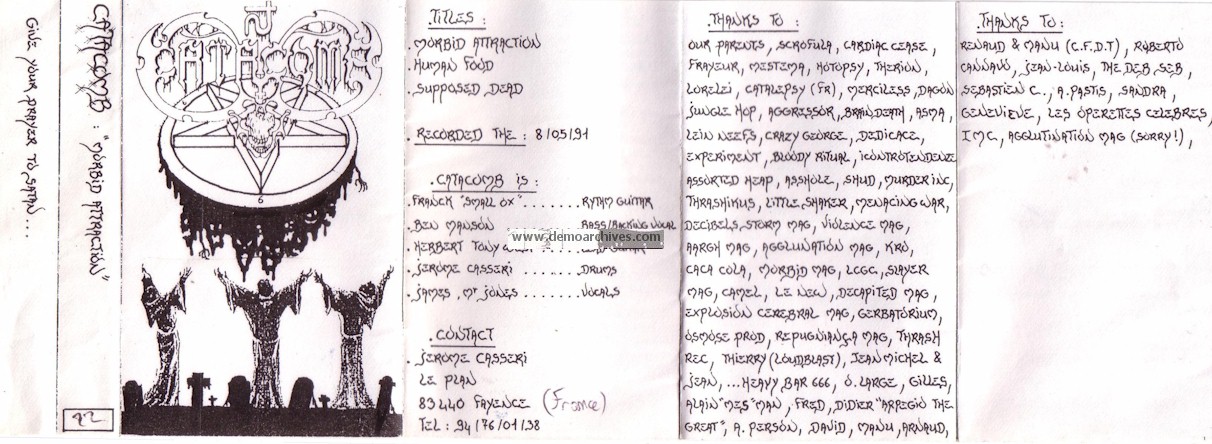 GIVE YOUR PRAYER TO SATAN....
CATACOMB : "MORBID ATTRACTION"
92
CATACOMB
6
TITLES :
. MORBID ATTRACTION
. HUMAN FOOD
. SUPPOSED DEAD
. RECORDED THE : 8/05/91
. CATACOMB is :
. FRANCK "SMALL OX" ........ RYTHM GUITAR
. BEN MANSON BASS/BACKING VOCAL
www.demoarchives.com
. HERBERT TONY GUITAR
. JEROME CASSERI ...... DRUMS
. JAMES MR JONES ....... VOCALS
. CONTACT
. JEROME CASSERI
LE PLAN
83440 FAYENCE (France)
TEL : 94/76/01/38
. THANKS TO :
OUR PARENTS, SCROFULA, CARDIAC CEASE,
FRAYEUR, MESTEMA, HOTOPSY, THERION,
LORELEI, CATALEPSY (FR), MERCILESS, DAGON
JUNGLE HOP, AGGRESSOR, BRAINDEATH, ASMA,
LEIN NEEFS, CRAZY GEORGE, DEDICACE,
EXPERIMENT, BLOODY RITUAL, ICONTROTENDENZE
ASSORTED HEAP, ASSHOLE, SHUD, MURDER INC,
THRASHIKUS, LITTLE SHAKER, MENACING WAR,
DECIBELS STORM MAG, VIOLENCE MAG,
AARGH MAG, AGGLUNATION MAG, KRO,
CACA COLA, MORBID MAG, LCGC, SLAYER
MAG, CAMEL, LE NEW, DECAPITED MAG,
EXPLOSION CEREBRAL MAG, GERBATORIUM,
OSMOSE PROD, REPUGNIANGA MAG, THRASH
REC, THIERRY (LOUDBLAST), JEAN MICHEL &
JEAN, ... HEAVY BAR 666, O. LARGE, GILLES,
ALAIN "MES" MAN, FRED, DIDIER "ARPEGIO THE
GREAT", A. PERSON, DAVID, MANU, ARNAUD,
. THANKS TO :
RENAUD & MANU (C.F.D.T), ROBERTO
CANNAVO, JEAN-LOUIS, THE DEB SEB,
SEBASTIEN C.., A. PASTIS, SANDRA,
GENEVIEVE, LES OPERETTES CELEBRES,
IMC, AGGLUTINATION MAG (SORRY!),